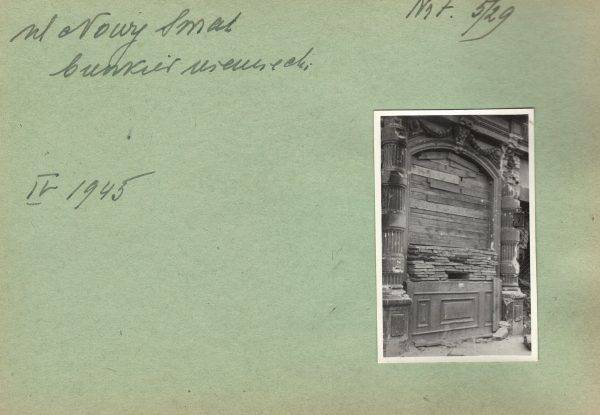 ul Nowy Świat
Nr f. 5/29
bunkier niemiecki
IV 1945